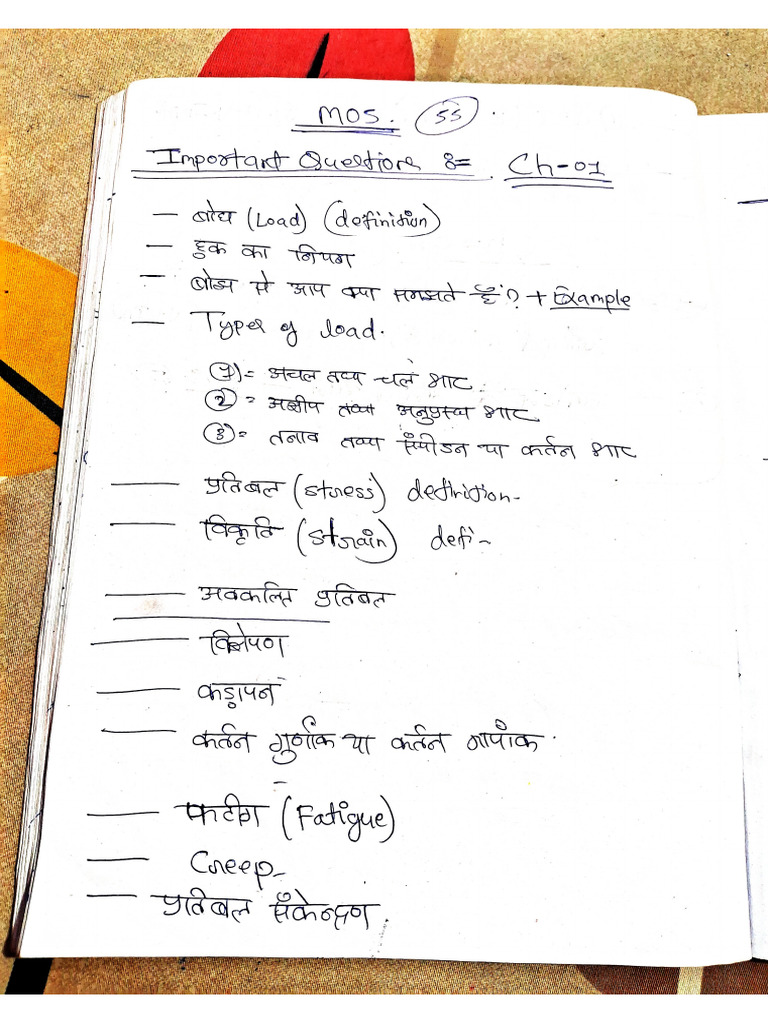 MOS. 55.
Important Questions := Ch-01
— बोझ (Load) (definition)
— हुक का नियम
— बोझ से आप क्या समझते हैं? + Example
— Types of load.
①= अचल तथा चल भार
②= अक्षीय तथा अनुप्रस्थ भार
③= तनाव तथा संपीडन या कर्तन भार
— प्रतिबल (stress) definition-
— विकृति (strain) defi-
— अवकलित प्रतिबल
— विक्षेपण
— कड़ापन
— कर्तन गुणांक या कर्तन मापांक.
— फटीग (Fatigue)
— Creep-
— प्रतिबल संकेन्द्रण.